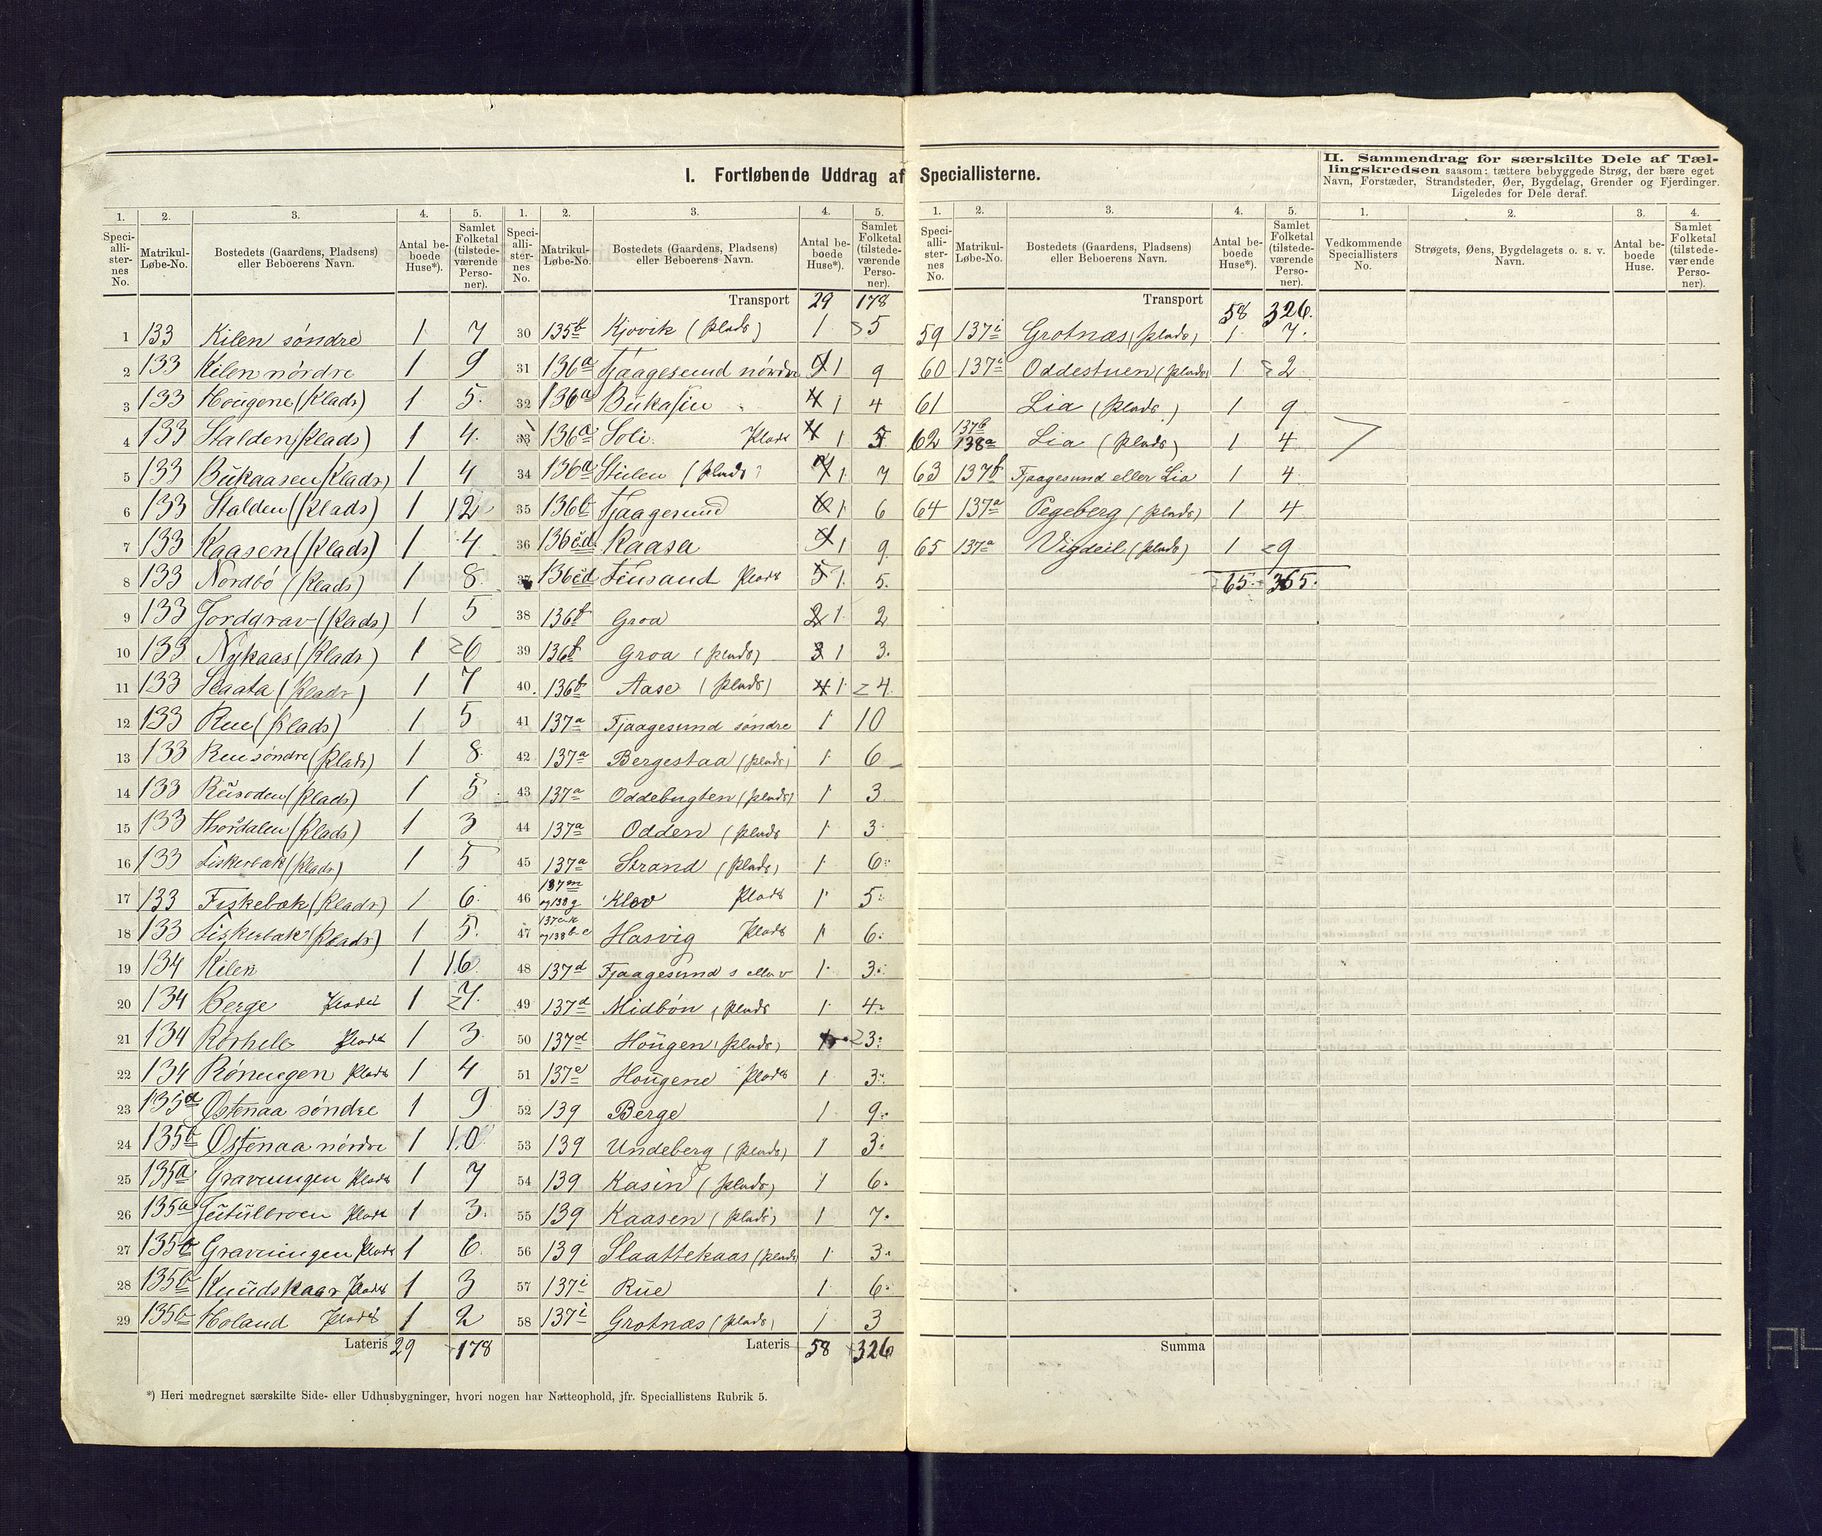 I. Fortløbende Uddrag af Speciallisterne.
II. Sammendrag for særskilte Dele af Tællingskredsen saasom: tættere bebyggede Strøg, der bære eget Navn, Forstæder, Strandsteder, Øer, Bygdelag, Grender og Fjerdinger. Ligeledes for Dele deraf.
1. 2. 3. 4. 5.
Speciallisternes No. Matrikul-Løbe-No. Bostedets (Gaardens, Pladsens) eller Beboerens Navn. Antal beboede Huse*). Samlet Folketal (tilstedeværende Personer).
1 133 Kilen søndre 1 7
2 133 Kilen nørdre 1 9
3 133 Hougene (Plads) 1 5.
4 133 Stalden (Plads) 1 4.
5 133 Bükaasen (Plads) 1 4
6 133 Stalden (Plads) 1 12
7 133 Kaasen (Plads) 1 4.
8 133 Nordbö (Plads) 1 8.
9 133 Jordgrav (Plads) 1 5
10 133 Nykaas (Plads) 1 6
11 133 Slaata (Plads) 1 7
12 133 Rue (Plads) 1 5
13 133 Rue søndre (Plads) 1 8.
14 133 Rüsoden (Plads) 1 5
15 133 Thordalen (Plads) 1 3
16 133 Fiskerbæk (Plads) 1 5
17 133 Fiskebæk (Plads) 1 6.
18 133 Fiskerbæk (Plads) 1 5.
19 134 Kilen 1 16
20 134 Berge Plads 1 7.
21 134 Rörhele Plads 1 3.
22 134 Röningen Plads 1 4
23 135a Østenaa søndre 1 9
24 135b Østenaa nørdre 1 10
25 135a Gravningen Plads 1 7
26 135a Jütülbroen Plads 1 3.
27 135b Gravningen Plads 1 6.
28 135b Knüdskaar Plads 1 3
29 135b Holand Plads 1 2
Lateris 29 178
1. 2. 3. 4. 5.
Speciallisternes No. Matrikul-Løbe-No. Bostedets (Gaardens, Pladsens) eller Beboerens Navn. Antal beboede Huse*). Samlet Folketal (tilstedeværende Personer).
Transport 29 178
30 135b Kjovik (Plads) 1 5
31 136a Fjaagesund nördre 1 9
32 136a Bükasin 1 4
33 136a Soli Plads 1 5
34 136a Stülen (Plads) 1 7
35 136b Fjaagesund 1 6
36 136c d Kaasa 1 9
37 136c d Finsand Plads 1 5.
38 136f Groa 1 2
39 136f Groa (Plads) 1 3.
40. 136f Aase (Plads) 1 4.
41 137a Fjaagesund søndre 1 10
42 137a Bergestaa (Plads) 1 6
43 137a Oddebugten (Plads) 1 3
44 137a Odden (Plads 1 3.
45 137a Strand (Plads) 1 6.
46 137m og 138g Klev Plads 1 5.
47 Hasvig Plads 1 6.
48 137d Fjaagesund s eller v 1 3.
49 137d Midbön (Plads 1 4.
50 137d Hougen (Plads) 1 3.
51 137e Hougene Plads 1 3.
52 139 Berge 1 9.
53 139 Undeberg (Plads) 1 3.
54 139 Kasin (Plads) 1 6.
55 139 Kaasen (Plads) 1 7.
56 139 Slaattekaas (Plads) 1 3.
57 137i Rüe 1 6.
58 137i Grotnæs (Plads) 1 3
Lateris 58 326
*) Heri medregnet særskilte Side- eller Udhusbygninger, hvori nogen har Natteophold, jfr. Speciallistens Rubrik 5.
1. 2. 3. 4. 5.
Speciallisternes No. Matrikul-Løbe-No. Bostedets (Gaardens, Pladsens) eller Beboerens Navn. Antal beboede Huse*). Samlet Folketal (tilstedeværende Personer).
Transport 58 326.
59 137i Grotnæs (Plads) 1 7.
60 137i Oddestuen (Plads) 1 2
61 Lia (Plads.) 1 9
62 137b 138a Lia (Plads) 1 4
63 137f Fjaagesund eller Lia 1 4
64 137a Pegeberg (Plads) 1 4
65 137a Vigdeil (Plads) 1 9
65. 365.
Summa
1. 2. 3. 4.
Vedkommende Speciallisters No. Strøgets, Øens, Bygdelagets o. s. v. Navn. Antal beboede Huse. Samlet Folketal (tilstedeværende Personer).